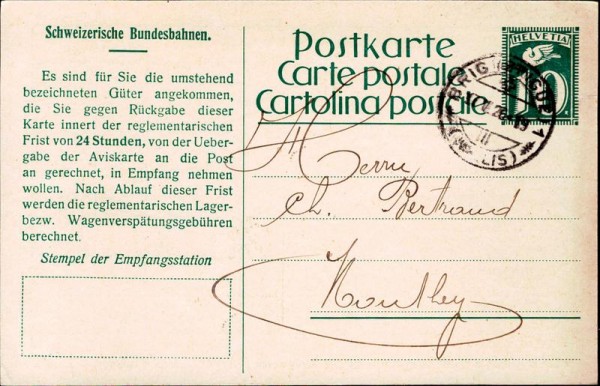 Schweizerische Bundesbahnen.
Es sind für Sie die umstehend
bezeichneten Güter angekommen,
die Sie gegen Rückgabe dieser
Karte innert der reglementarischen
Frist von 24 Stunden, von der Ueber-
gabe der Aviskarte an die Post
an gerechnet, in Empfang nehmen
wollen. Nach Ablauf dieser Frist
werden die reglementarischen Lager-
bezw. Wagenverspätungsgebühren
berechnet.
Stempel der Empfangsstation
Postkarte
Carte postale
Cartolina postale
HELVETIA
10
BRIG
Herrn
Ch. Bertrand
Monthey